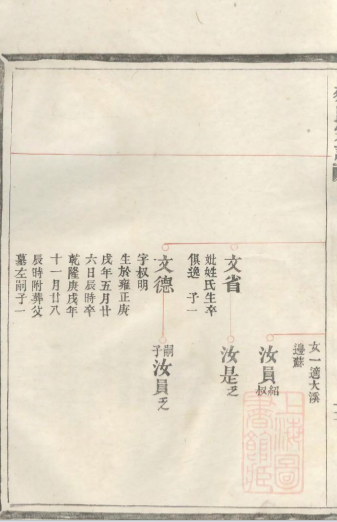 女一適大溪
邊蘇
汝員紹叔
文省
妣姓氏生卒
俱逸 子一
汝是乏
文德
字叔明
生於雍正庚
戌年五月廿
六日辰時卒
乾隆庚戌年
十一月廿八
辰時附葬父
墓左嗣子一
嗣子汝員乏
上海圖書館藏